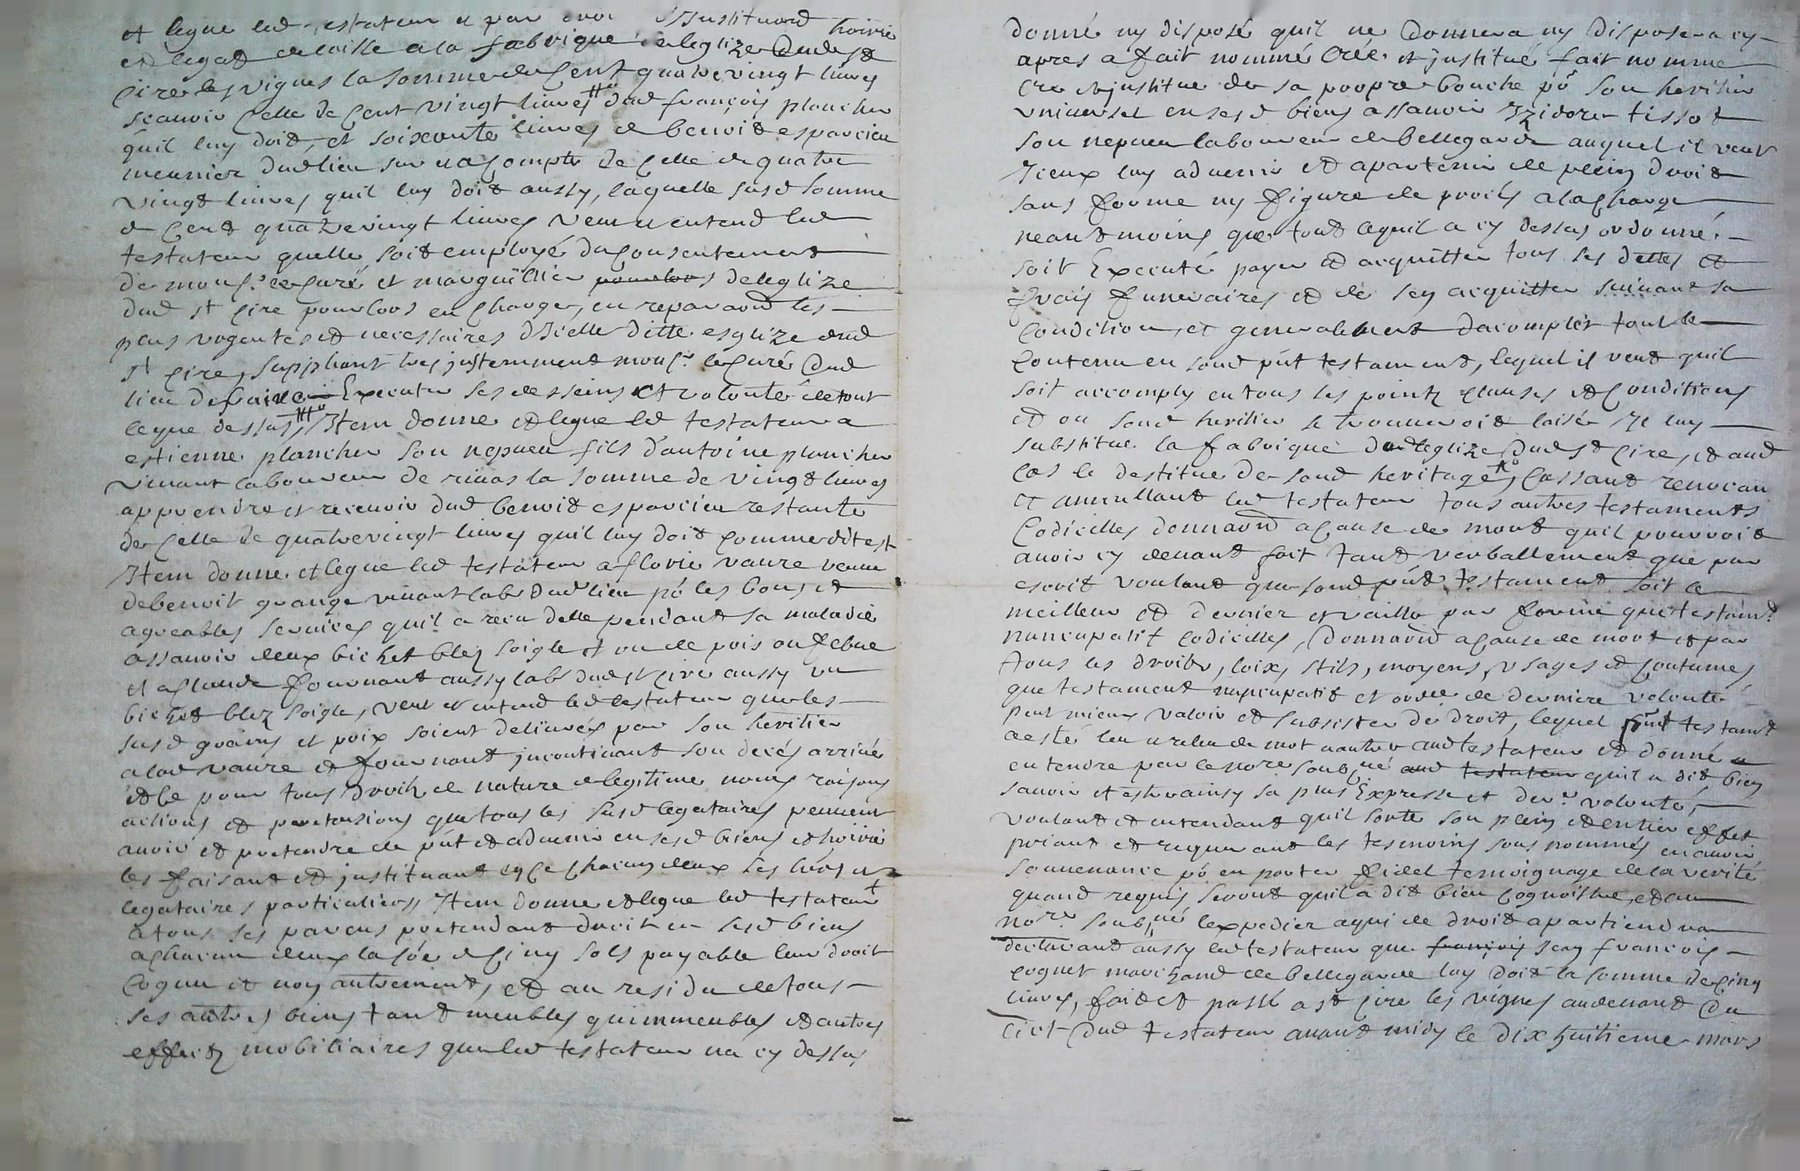 et legue led testateur et par droit d'Institution hoirie
et legat delaisse a la fabrique de leglize dud St
Cire les vignes la somme de Cent quatrevingt livres
scavoir Celle de Cent vingt livres dud françois plancher
quil luy doit, et soixante livres de benoit esparcieu
meunier dud lieu sur et a Compte de Celle de quatre
vingt livres quil luy doit aussy, laquelle susd somme
de Cent quatrevingt livres veut et entend led
testateur quelle soit employé du Consentement
de monsr le Curé et marguillier pour lors de leglize
dud st Cire pour lors en Charge, en reparaons les
plus urgentes et necessaires d'Icelle ditte esglize dud
st Cire, suppliant tres justemment monsr le Curé dud
lieu de faire Executer ses desseins et volonté de tout
ce que dessus, Item donne et legue led testateur a
estienne plancher son nepveu fils d'antoine plancher
vivant laboureur de rivas la somme de vingt livres
a prendre et recevoir dud benoit esparcieu restante
de Celle de quatrevingt livres quil luy doit Comme dit est
Item donne et legue led testateur a florie vaure veuve
de benoit grange vivant labr dud lieu pr les bons et
agreables services quil a receu delle pendant sa maladie
assavoir deux bichet bled soigle et un de pois ou febve
et a Claude fournant aussy labr dud st Cire aussy un
bichet bled soigle, veut et entend led testateur que les
susd grains et poix soient delivrés par son heritier
a lad vaure et fournant incontinant son decés arrivé
et ce pour tous droits de nature legitime noms raisons
actions et pretensions que tous les susd legataires peuvent
avoir et pretendre de pnt et advenir en sesd biens et hoirie
les faisant et instituant en ce Chacun deux ses hers et
legataires particuliers, Item donne et legue led testateur
a tous ses parens pretendant droit en sesd biens
a Chacun deux la soe de Cinq sols payable leur droit
Cognu et non autrement, et au residu de tous
ses autres biens tant meubles quimmeubles et autres
effects mobiliaires que led testateur na cy dessus
donné ny disposé quil ne donnera ny disposera cy
apres a fait nommé Créé et institué fait nomme
Crée et institue de sa propre bouche pr son heritier
universel en sesd biens assavoir Izidore tissot
son nepveu laboureur de bellegarde auquel il veut
Iceux luy advenir et apartenir de plein droit
sans forme ny figure de procès a la Charge
neantmoins que tout ce quil a cy dessus ordonné
soit Executé payer et acquitter tous ses dettes et
frais funeraires et de sen acquitter suivant sa
Condition, et generalement d'acomplir tout le
Contenu en sond pnt testament, lequel il veut quil
soit accomply en tous les points clauses et Conditions
et ou sond heritier se trouveroit laisér Il luy
substitue la fabrique de leglize dud st Cire, et aud
Cas le destitue de sond heritage, Cassant revocant
et annullant led testateur tous autres testaments
Codicilles donnaons a Cause de mort quil pourroit
avoir cy devant fait tant verballement que par
escrit voulant que sond pnt testament soit le
meilleur et dernier et vaille par forme que testamt
nuncupatif Codicilles, Donnaon a Cause de mort et par
tous les droits, loix, stils, moyens, usages et Coutumes
que testament nuncupatif et ordce de derniere volonté
peut mieux valoir et subsister de droit, lequel pnt testamt
a esté leu et releu de mot a autre aud testateur et donné a
entendre par le nore soubné aud testateur quil a dit bien
savoir et estre ainsy sa plus Expresse et derre volonté,
voulant et entendant quil sorte son plein et entier effet
priant et requerant les tesmoins sous nommés en avoir
souvenance pr en porter fidel temoignage de la verité
quand requis seront quil a dit bien Cognoistre, et au
nore soubné lexpedier a qui de droit apartiendra
declarant aussy led testateur que françois Jean françois
Cognet marchand de bellegarde luy doit la somme de Cinq
livres, fait et passé a st Cire les vignes au devant du
lict dud testateur avant midy le dix huitieme mars